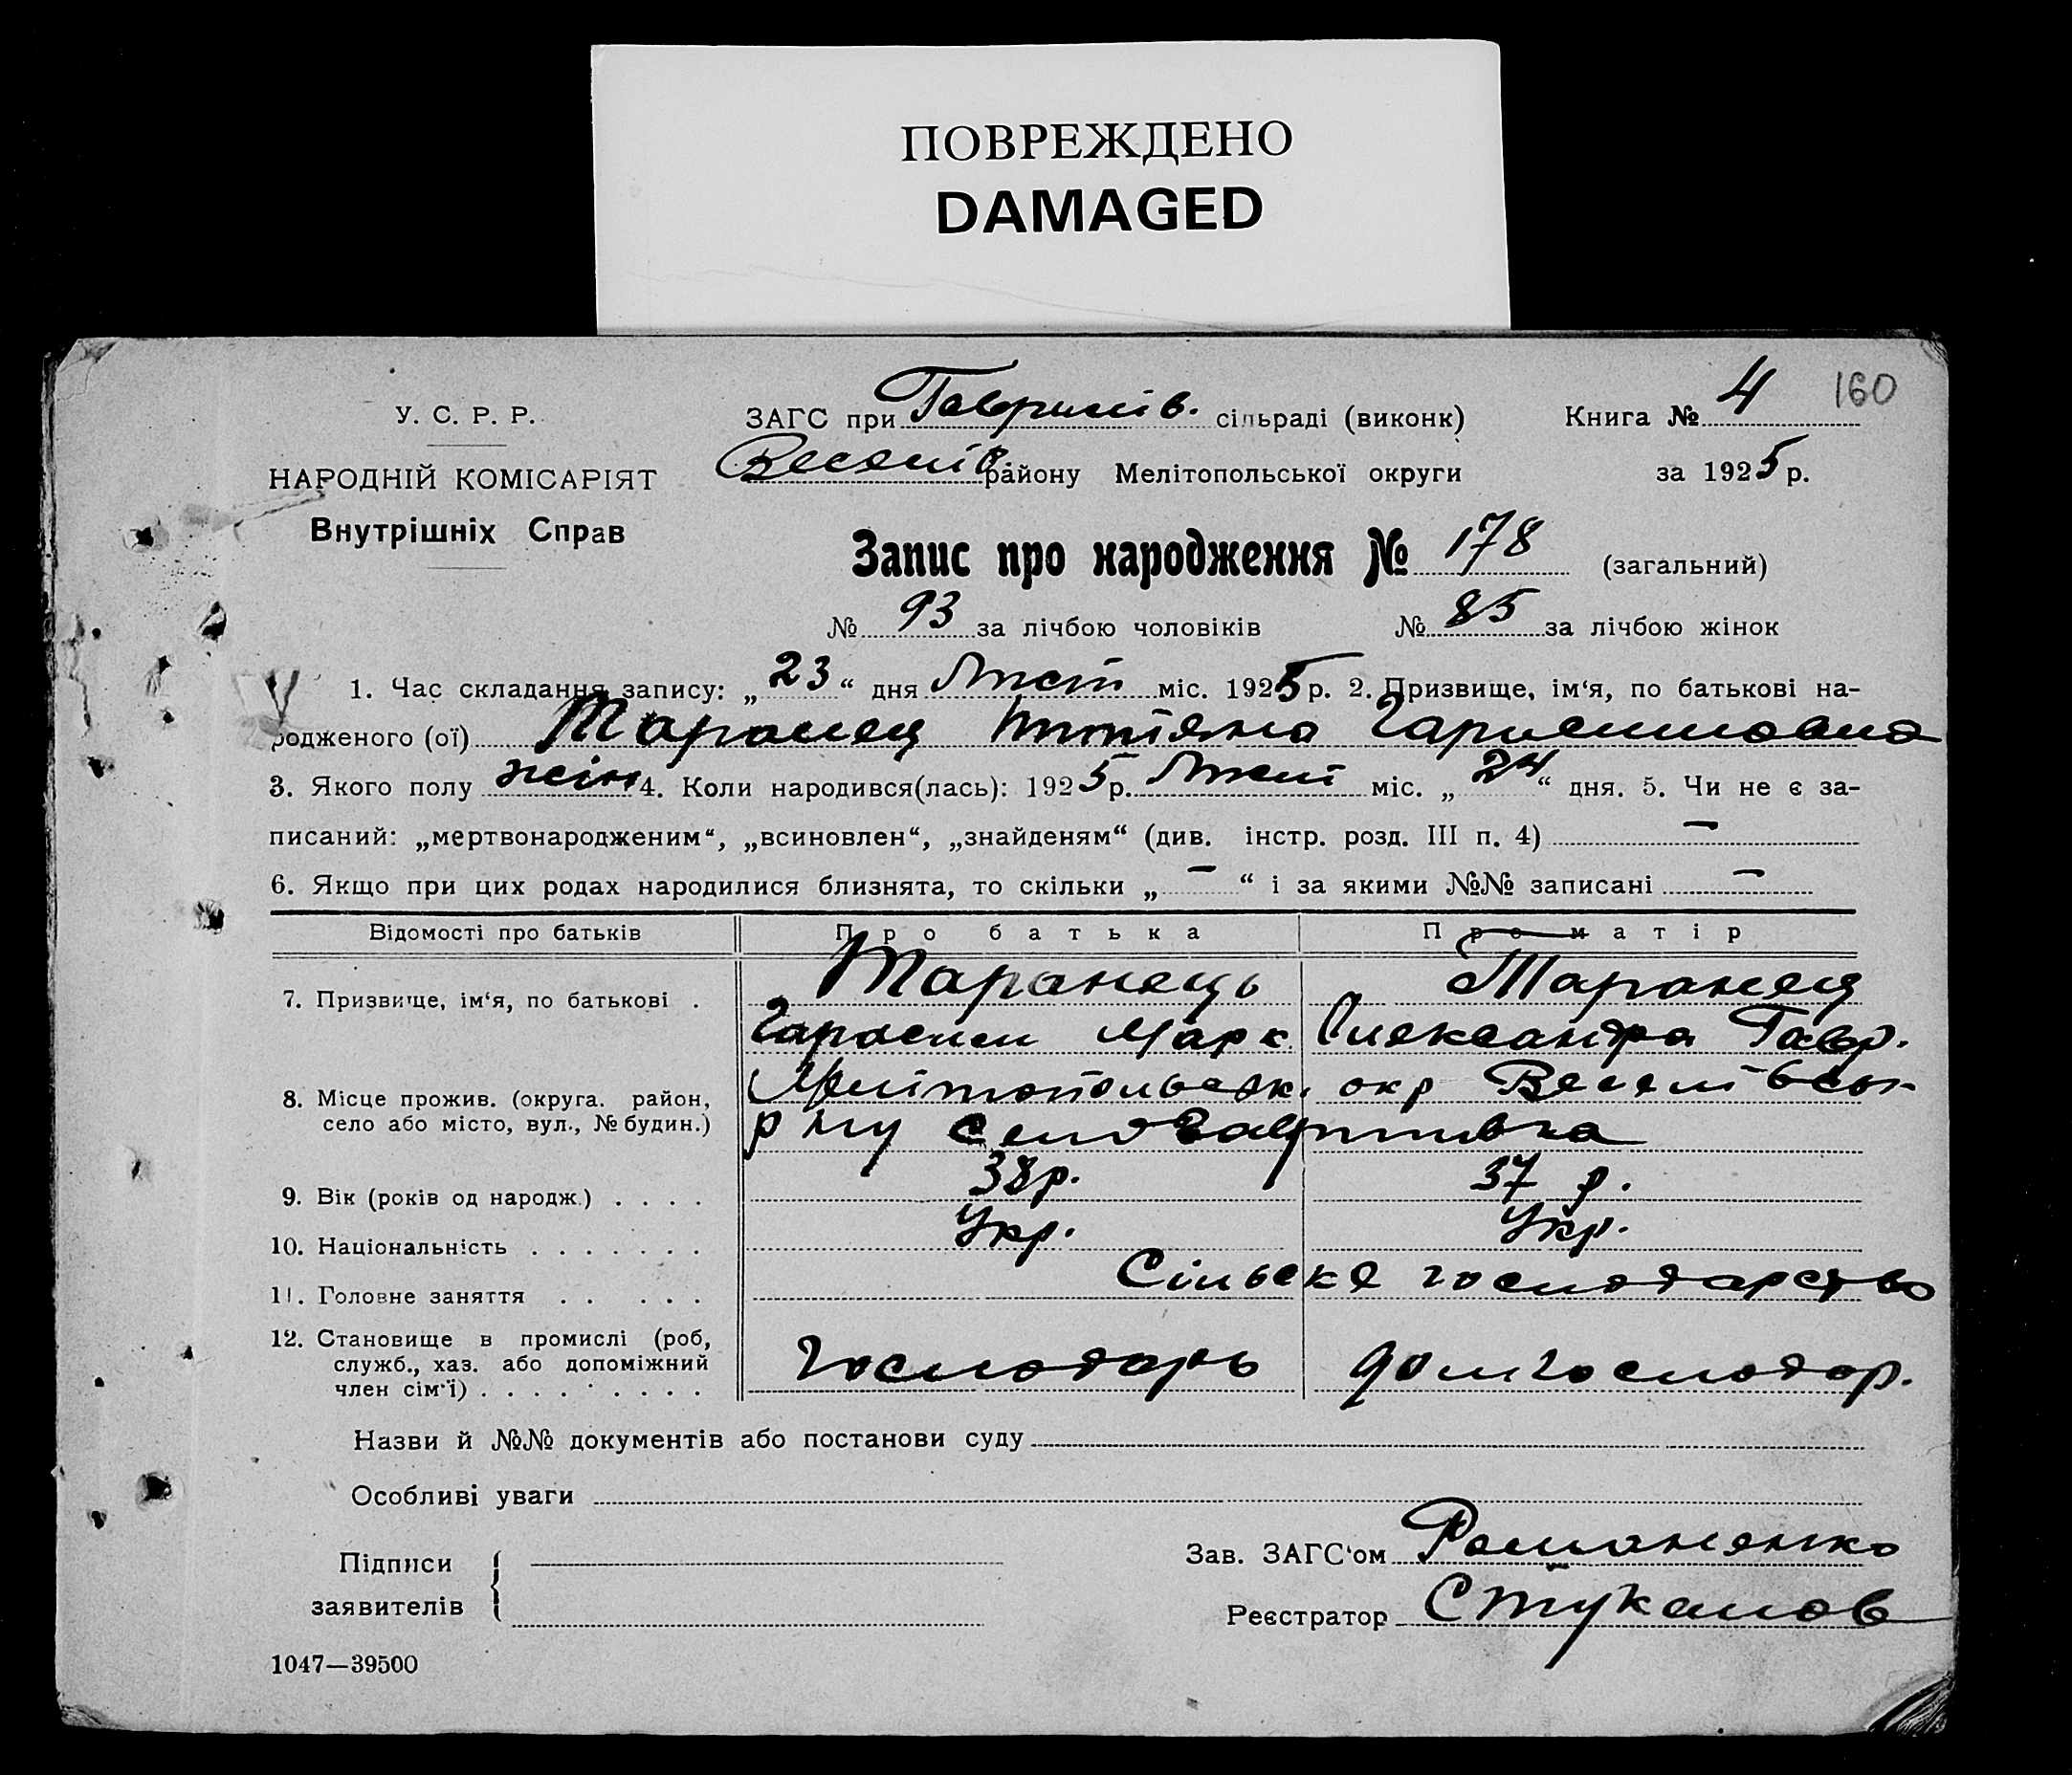 ПОВРЕЖДЕНО
DAMAGED
160
У. С. Р. Р.
НАРОДНІЙ КОМІСАРІЯТ
Внутрішніх Справ
ЗАГС при Гаврилів. сільраді (виконк)
Книга № 4
Веселів. району Мелітопольської округи
за 1925 р.
Запис про народження № 178 (загальний)
№ 93 за лічбою чоловіків № 85 за лічбою жінок
1. Час складання запису: „23“ дня Лист міс. 1925 р. 2. Призвище, ім‘я, по батькові на-
родженого (ої) Таранец Тетяна
3. Якого полу жін 4. Коли народився(лась): 1925 р. Лист міс. „24“ дня. 5. Чи не є за-
писаний: „мертвонародженим“, „всиновлен“, „знайденям“ (див. інстр. розд. III п. 4) —
6. Якщо при цих родах народилися близнята, то скільки „ — “ і за якими №№ записані —
Відомості про батьків
Про батька
Про матір
7. Призвище, ім‘я, по батькові .
Таранець
Гарасим Марк.
Таранец
Олександра Гавр.
8. Місце прожив. (округа. район,
село або місто, вул., № будин.)
Мелітопольськ. окр Веселівськ
р ну село Гаврилівка
9. Вік (років од народж.) . . . .
38р.
37 р.
10. Національність . . . . . . .
Укр.
Укр.
11. Головне заняття . . . . .
Сільске господарство
12. Становище в промислі (роб,
служб., хаз. або допоміжний
член сім‘ї) . . . . . . . . .
Господарь
домгосподар.
Назви й №№ документів або постанови суду
Особливі уваги
Підписи
заявителів
Зав. ЗАГС‘ом Романенко
Реєстратор Стукалов
1047—39500